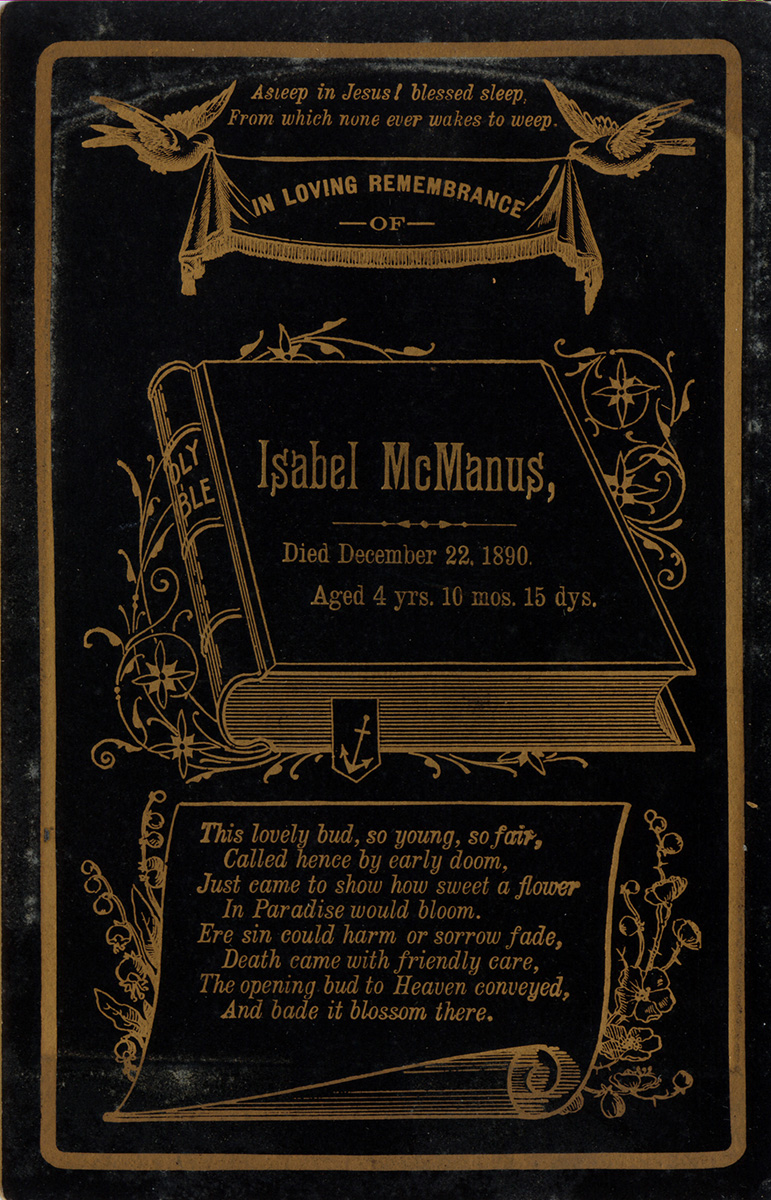 Asleep in Jesus! blessed sleep,
From which none ever wakes to weep.
IN LOVING REMEMBRANCE
—OF—
OLY
BLE
Isabel McManus,
Died December 22, 1890.
Aged 4 yrs. 10 mos. 15 dys.
This lovely bud, so young, so fair,
Called hence by early doom,
Just came to show how sweet a flower
In Paradise would bloom.
Ere sin could harm or sorrow fade,
Death came with friendly care,
The opening bud to Heaven conveyed,
And bade it blossom there.